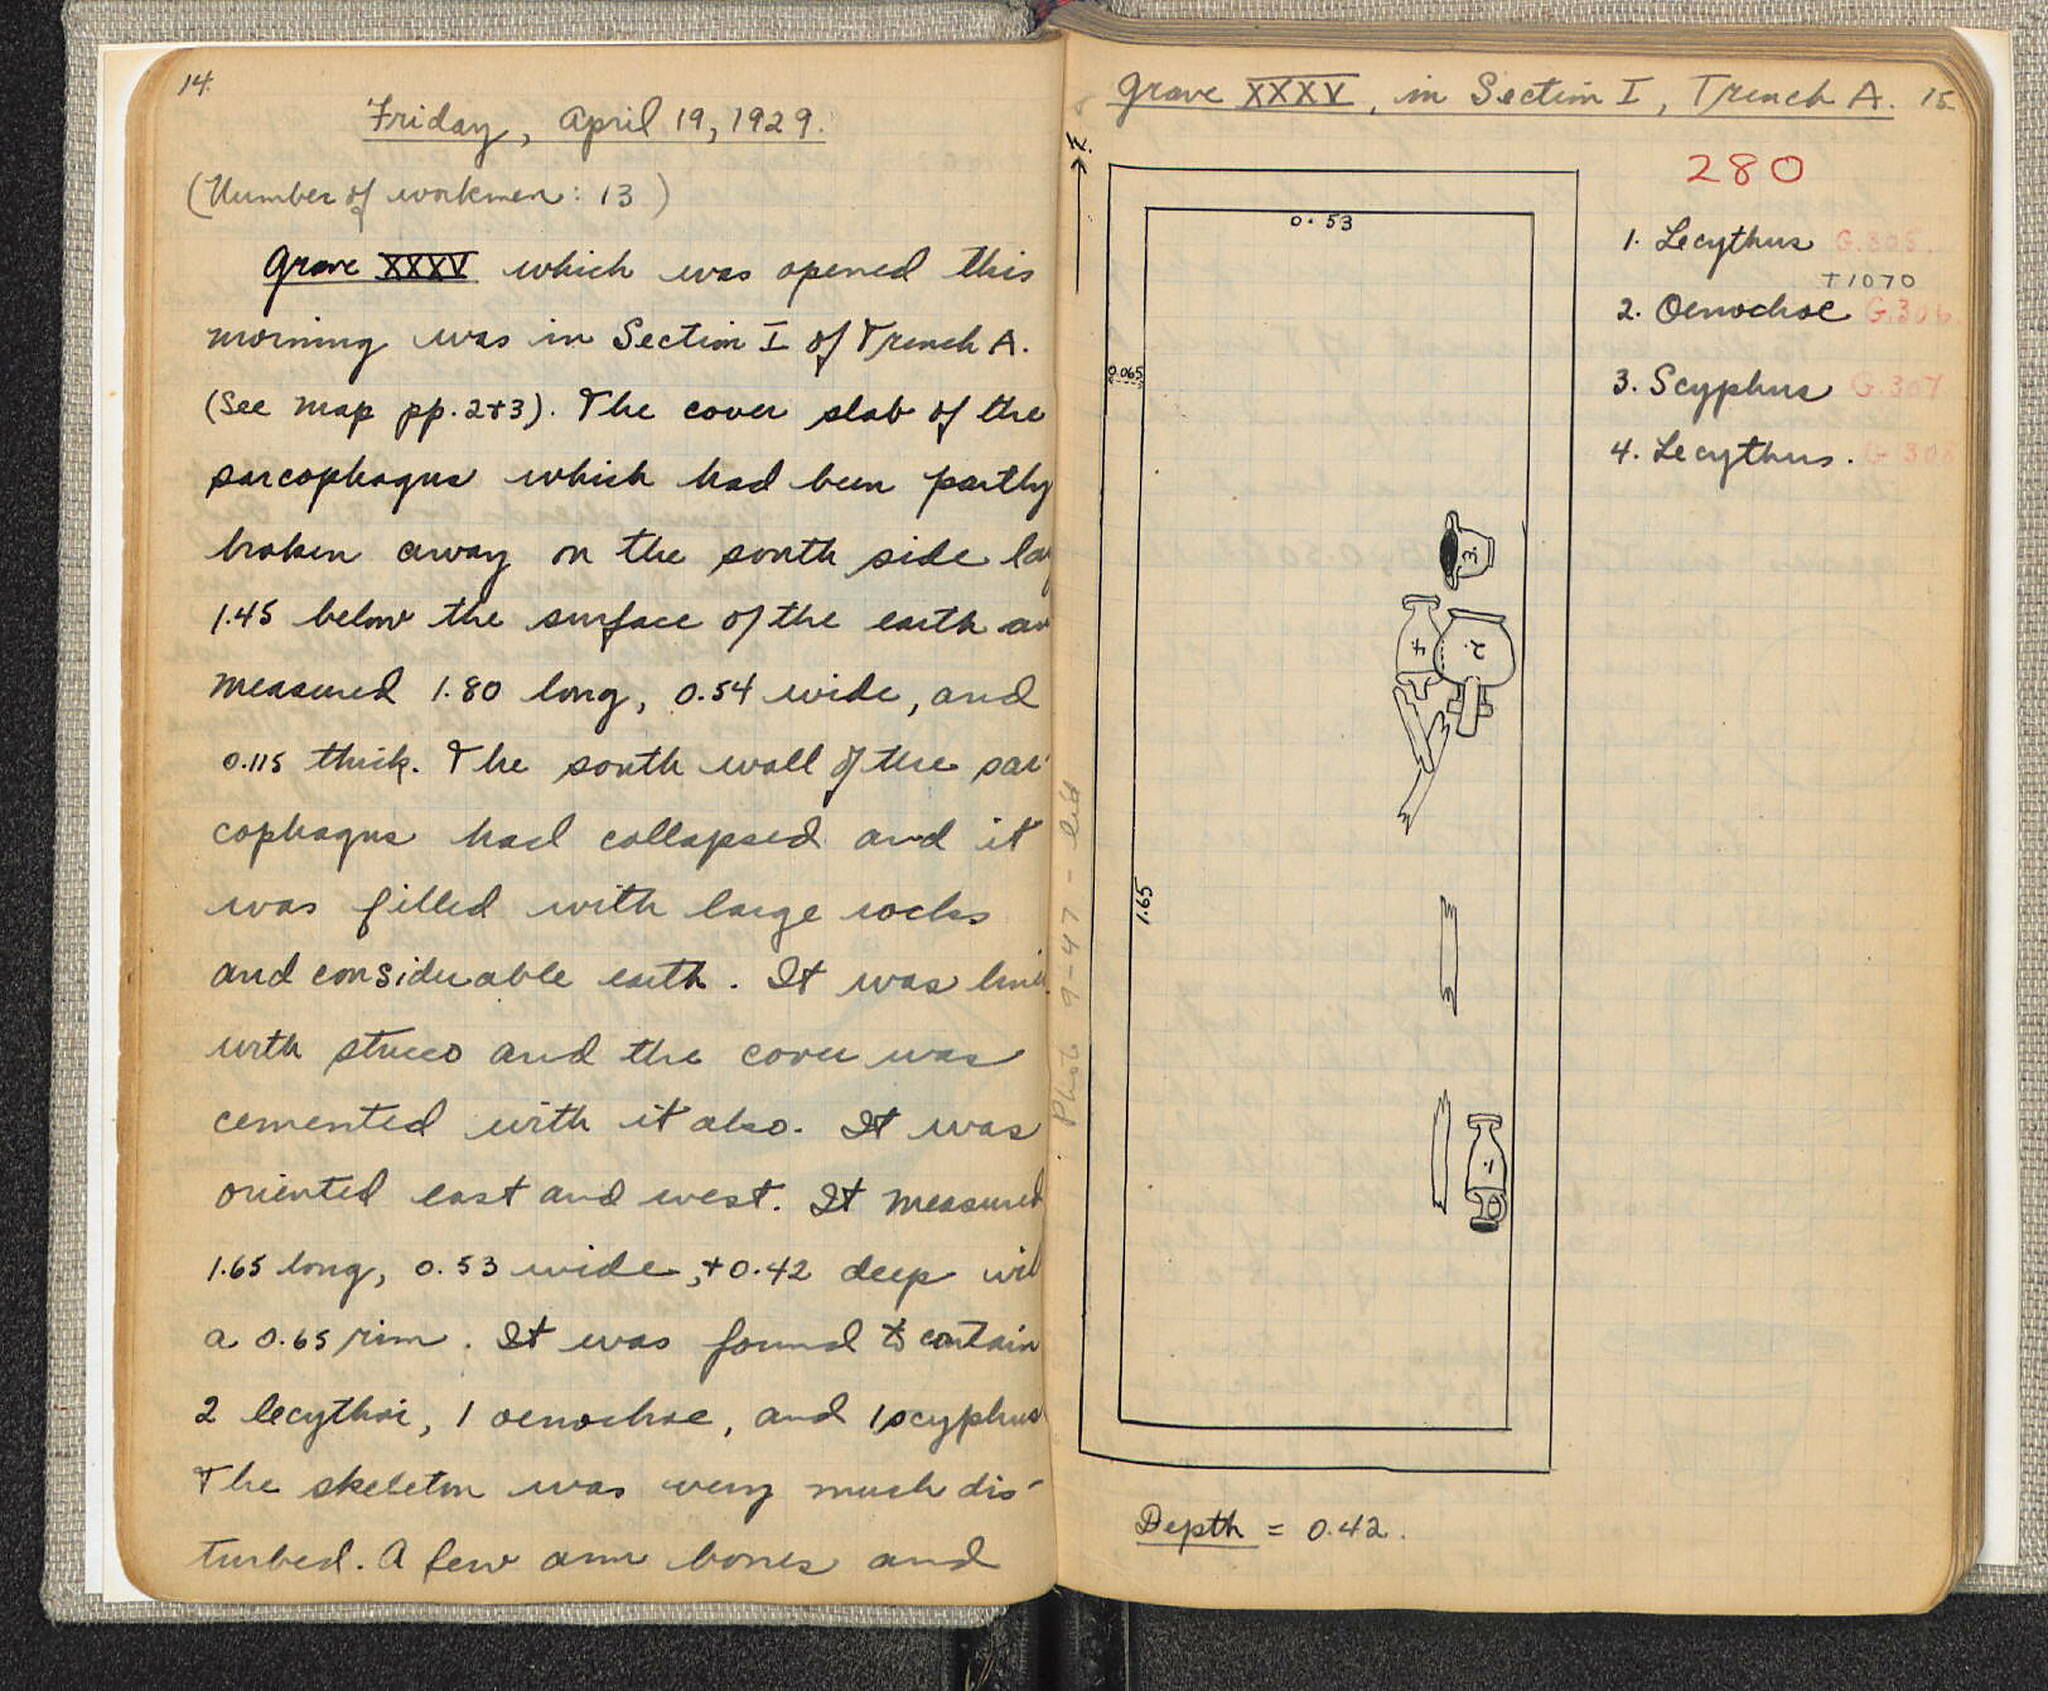 14.
Friday, April 19, 1929.
(Number of workmen: 13)
Grave XXXV which was opened this
morning was in Section I of Trench A.
(See map pp. 2+3). The cover slab of the
sarcophagus which had been partly
broken away on the south side lay
1.45 below the surface of the earth an
measured 1.80 long, 0.54 wide, and
0.115 thick. The south wall of the sar-
cophagus had collapsed and it
was filled with large rocks
and considerable earth. It was line
with stucco and the cover was
cemented with it also. It was
oriented east and west. It measured
1.65 long, 0.53 wide, + 0.42 deep wit
a 0.65 rim. It was found to contain
2 lecythoi, 1 oenochoe, and 1 scyphus
The skeleton was very much dis-
turbed. A few arm bones and
Grave XXXV, in Section I, Trench A. 15
280
0.53
1. Lecythus G.305.
T1070
2. Oenochoe G.306
0.065
3. Scyphus G.307
4. Lecythus. G.308
3.
4
2.
Photo 9-47-lid
1.65
1.
Depth = 0.42.